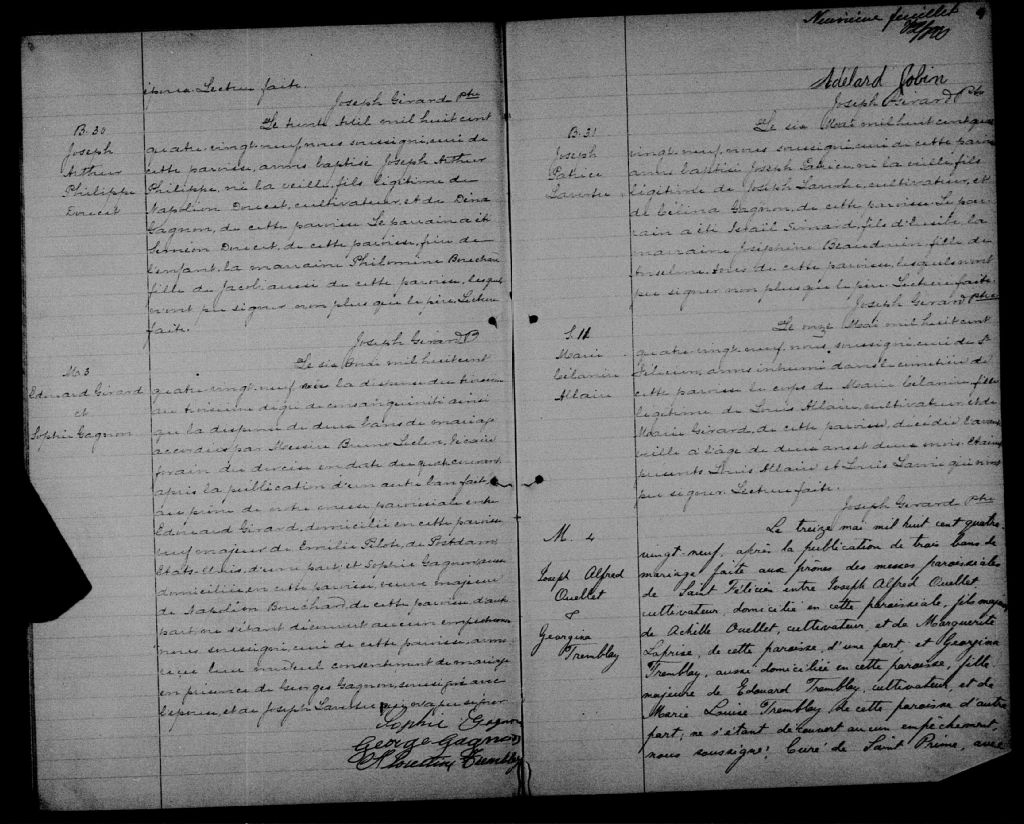 épouse. Lecture faite.
Joseph Girard Ptre
B. 30
Joseph
Arthur
Philippe
Doucet
Le trente Avril mil huit cent
quatre vingt-neuf, nous soussigné, curé de
cette paroisse, avons baptisé Joseph Arthur
Philippe, né la veille, fils légitime de
Napoléon Doucet, cultivateur, et de Dina
Gagnon, de cette paroisse. Le parrain a été
Siméon Doucet, de cette paroisse, frère de
l'enfant, la marraine Philomène Bouchard
fille de Jacob, aussi de cette paroisse, lesquels
n'ont pu signer non plus que le père. Lecture
faite.
Joseph Girard P
M. 3
Edouard Girard
et
Sophie Gagnon
Le six Mai mil huit cent
quatre vingt-neuf vu la dispense du troisième
au troisième degré de consanguinité ainsi
que la dispense de deux bans de mariage
accordées par Messire Bruno Leclerc, Vicaire
forain du diocèse en date du quatre courant
après la publication d'un autre ban fait
au prône de notre messe paroissiale entre
Edouard Girard, domicilié en cette paroisse
veuf majeur de Emilie Pilote, de Postdam
Etats-Unis, d'une part, et Sophie Gagnon, aussi
domiciliée en cette paroisse, veuve majeure
de Napoléon Bouchard, de cette paroisse d'autre
part ne s'étant découvert aucun empêchement
nous soussigné, curé de cette paroisse, avons
reçu leur mutuel consentement de mariage
en présence de Georges Gagnon, soussigné avec
l'épouse, et de Joseph qui n'a pu signer
Sophie Gagnon
George Gagnon
Tremblay
Neuvième feuillet
Adélard Jobin
Joseph Girard Ptre
B. 31
Joseph
Patrice
Lavertu
Le six Mai mil huit cent quatre
vingt-neuf, nous soussigné, curé de cette paroisse
avons baptisé Joseph Patrice, né la veille, fils
légitime de Joseph Lavertu, cultivateur, et
de Célina Gagnon, de cette paroisse. Le par-
rain a été Israël Simard, fils d'Eusèbe, la
marraine Joséphine Beaudouin fille de
Anselme, tous de cette paroisse, lesquels n'ont
pu signer non plus que le père. Lecture faite.
Joseph Girard Ptre
S. 11
Marie
Célanire
Allaire
Le onze Mai mil huit cent
quatre vingt-neuf, nous, soussigné, curé de St
Félicien, avons inhumé dans le cimetière de
cette paroisse le corps de Marie Célanire, fille
légitime de Louis Allaire, cultivateur, et de
Marie Girard, de cette paroisse, décédée l'avant
veille à l'âge de deux ans et deux mois. Etaient
présents Louis Allaire et Louis qui n'ont
pu signer. Lecture faite.
Joseph Girard Ptre
M. 4
Joseph Alfred
Ouellet
&
Georgina
Tremblay
Le treize mai mil huit cent quatre-
vingt-neuf, après la publication de trois bans de
mariage faite aux prônes des messes paroissiales
de Saint Félicien entre Joseph Alfred Ouellet
cultivateur, domicilié en cette paroissiale, fils majeur
de Achille Ouellet, cultivateur et de Marguerite
Laprise, de cette paroisse, d'une part, et Georgina
Tremblay, aussi domiciliée en cette paroisse, fille
majeure de Edouard Tremblay, cultivateur, et de
Marie Louise Tremblay de cette paroisse d'autre
part; ne s'étant découvert aucun empêchement,
nous soussigné, Curé de Saint Prime, avec